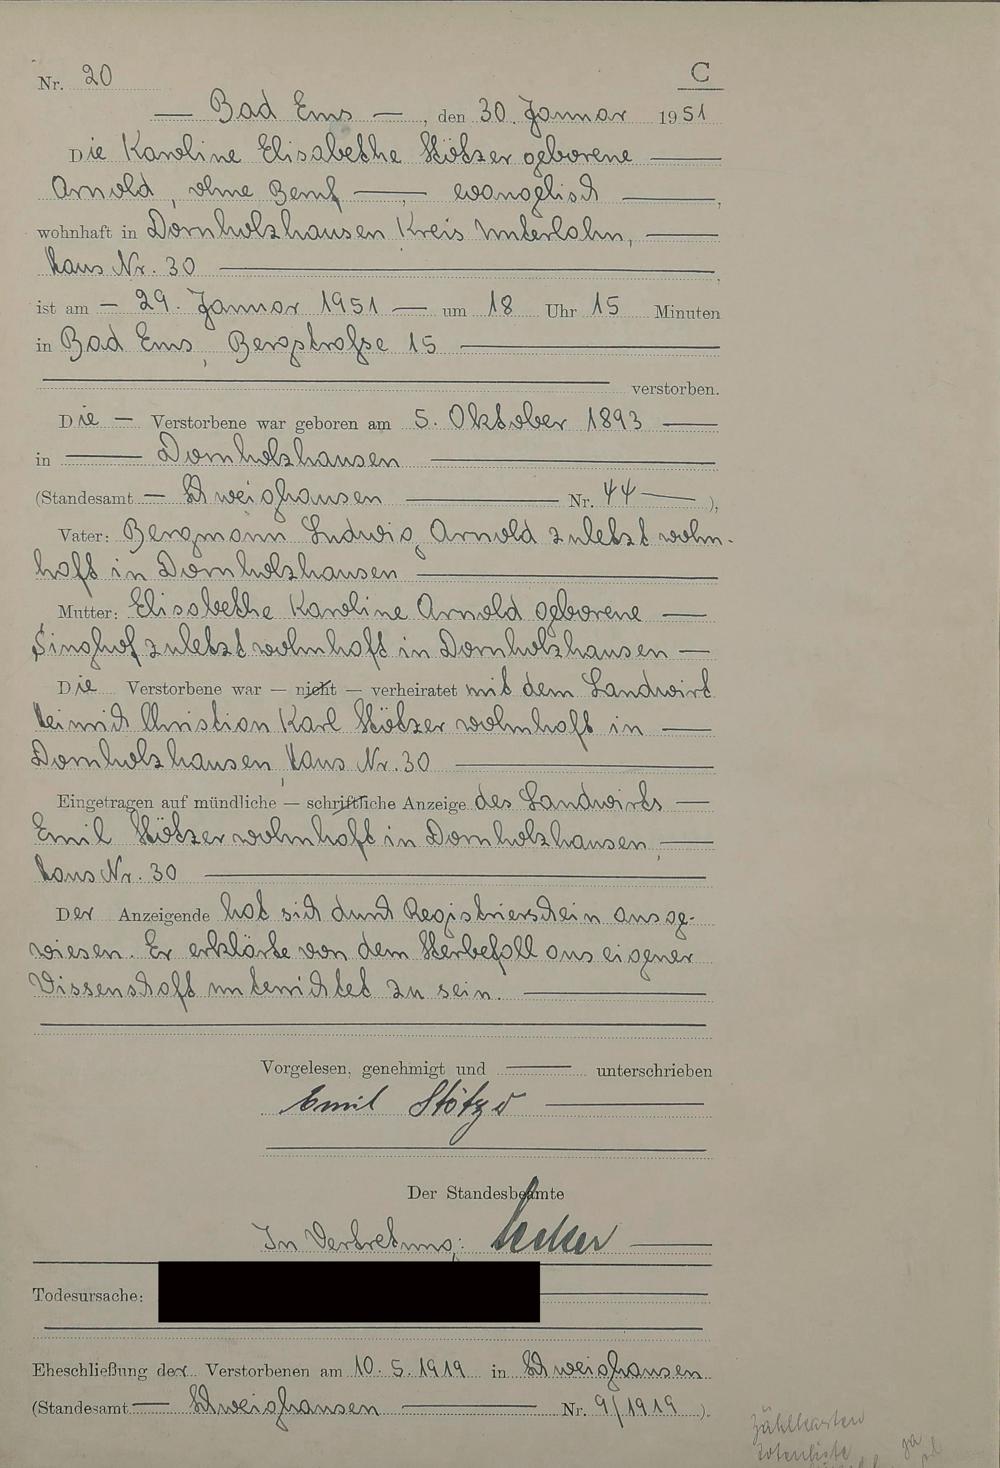 Nr. 20
C
— Bad Ems —, den 30. Januar 1951
Die Karoline Elisabethe Stötzer geborene —
Arnold, ohne Beruf —, — evangelisch —,
wohnhaft in Dornholzhausen Kreis Unterlahn, —
Haus Nr. 30 —,
ist am — 29. Januar 1951 — um 18 Uhr 15 Minuten
in Bad Ems, Bergstraße 15 —
— verstorben.
Die — Verstorbene war geboren am 5. Oktober 1893 —
in — Dornholzhausen —
(Standesamt — Schweighausen — Nr. 44 — ),
Vater: Bergmann Ludwig Arnold zuletzt wohn-
haft in Dornholzhausen —
Mutter: Elisabethe Karoline Arnold geborene —
Singhof zuletzt wohnhaft in Dornholzhausen —
Die Verstorbene war — nicht — verheiratet mit dem Landwirt
Heinrich Christian Karl Stötzer wohnhaft in —
Dornholzhausen, Haus Nr. 30 —
Eingetragen auf mündliche — schriftliche Anzeige des Landwirts —
Emil Stötzer wohnhaft in Dornholzhausen, —
Haus Nr. 30 —
Der Anzeigende hat sich durch Registrierschein ausge-
wiesen. Er erklärte von dem Sterbefall aus eigener
Wissenschaft unterrichtet zu sein. —
Vorgelesen, genehmigt und — unterschrieben
Emil Stötzer —
Der Standesbeamte
In Vertretung: —
Todesursache:
Eheschließung der Verstorbenen am 10.5.1919 in Schweighausen
(Standesamt — Schweighausen — Nr. 9/1919 ).
Zählkarten
Totenliste